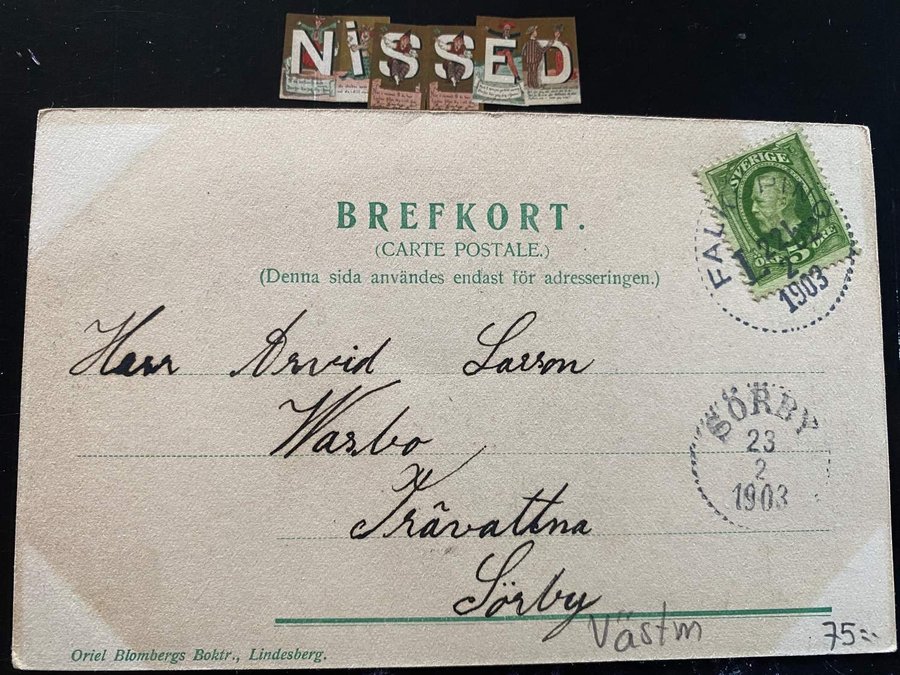 NiSSED
BREFKORT.
(CARTE POSTALE.)
(Denna sida användes endast för adresseringen.)
SVERIGE
5
FALKÖPING
2
1903
Herr Arvid Larson
Warbo
Trävattna
Sörby
SÖRBY
23
2
1903
Västm
75:-
Oriel Blombergs Boktr., Lindesberg.